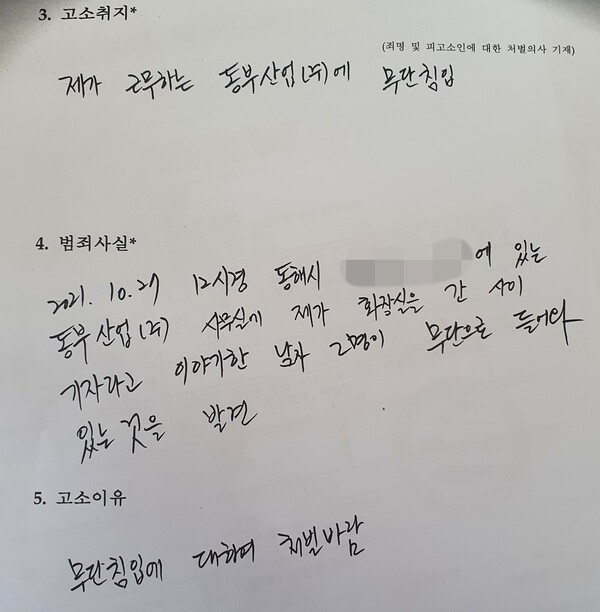 3. 고소취지*
(죄명 및 피고소인에 대한 처벌의사 기재)
제가 근무하는 동부산업(주)에 무단침입
4. 범죄사실*
2021. 10. 27 12시경 동해시 에 있는
동부산업(주) 사무실에 제가 화장실을 간 사이
기자라고 이야기한 남자 2명이 무단으로 들어와
있는 것을 발견
5. 고소이유
무단침입에 대하여 처벌바람